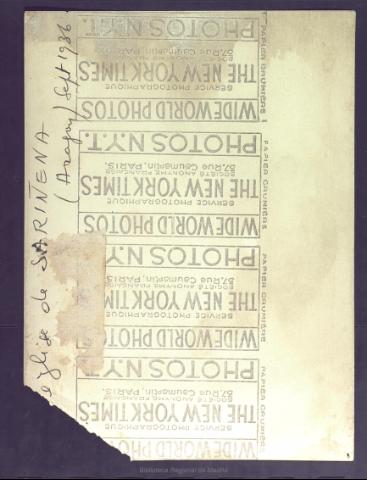 eglise de SARIÑENA
(Aragon) Sept 1936.
WIDE WORLD PHOTOS
SERVICE PHOTOGRAPHIQUE
THE NEW YORK TIMES
SOCIÉTÉ ANONYME FRANÇAISE
37, Rue Caumartin, PARIS.
PHOTOS N.Y.T.
WIDE WORLD PHOTOS
SERVICE PHOTOGRAPHIQUE
THE NEW YORK TIM
SOCIÉTÉ ANONYME FRANÇAISE
37, Rue Caumartin, PARIS.
PHOTOS NY
WIDE WORLD PHOTOS
SERVICE PHOTOGRAPHIQUE
THE NEW YORK TIMES
SOCIÉTÉ ANONYME FRANÇAISE
37, Rue Caumartin, PARIS.
PHOTOS N.Y.T.
WIDE WORLD PHOTOS
SERVICE PHOTOGRAPHIQUE
THE NEW YORK TIMES
37, Rue Caumartin, PARIS
PHOTOS N.Y.T.
PAPIER CRUMIÈRE
PAPIER CRUMIÈRE
PAPIER CRUMIÈRE
PAPIER CRUMIÈRE
Biblioteca Regional de Madrid